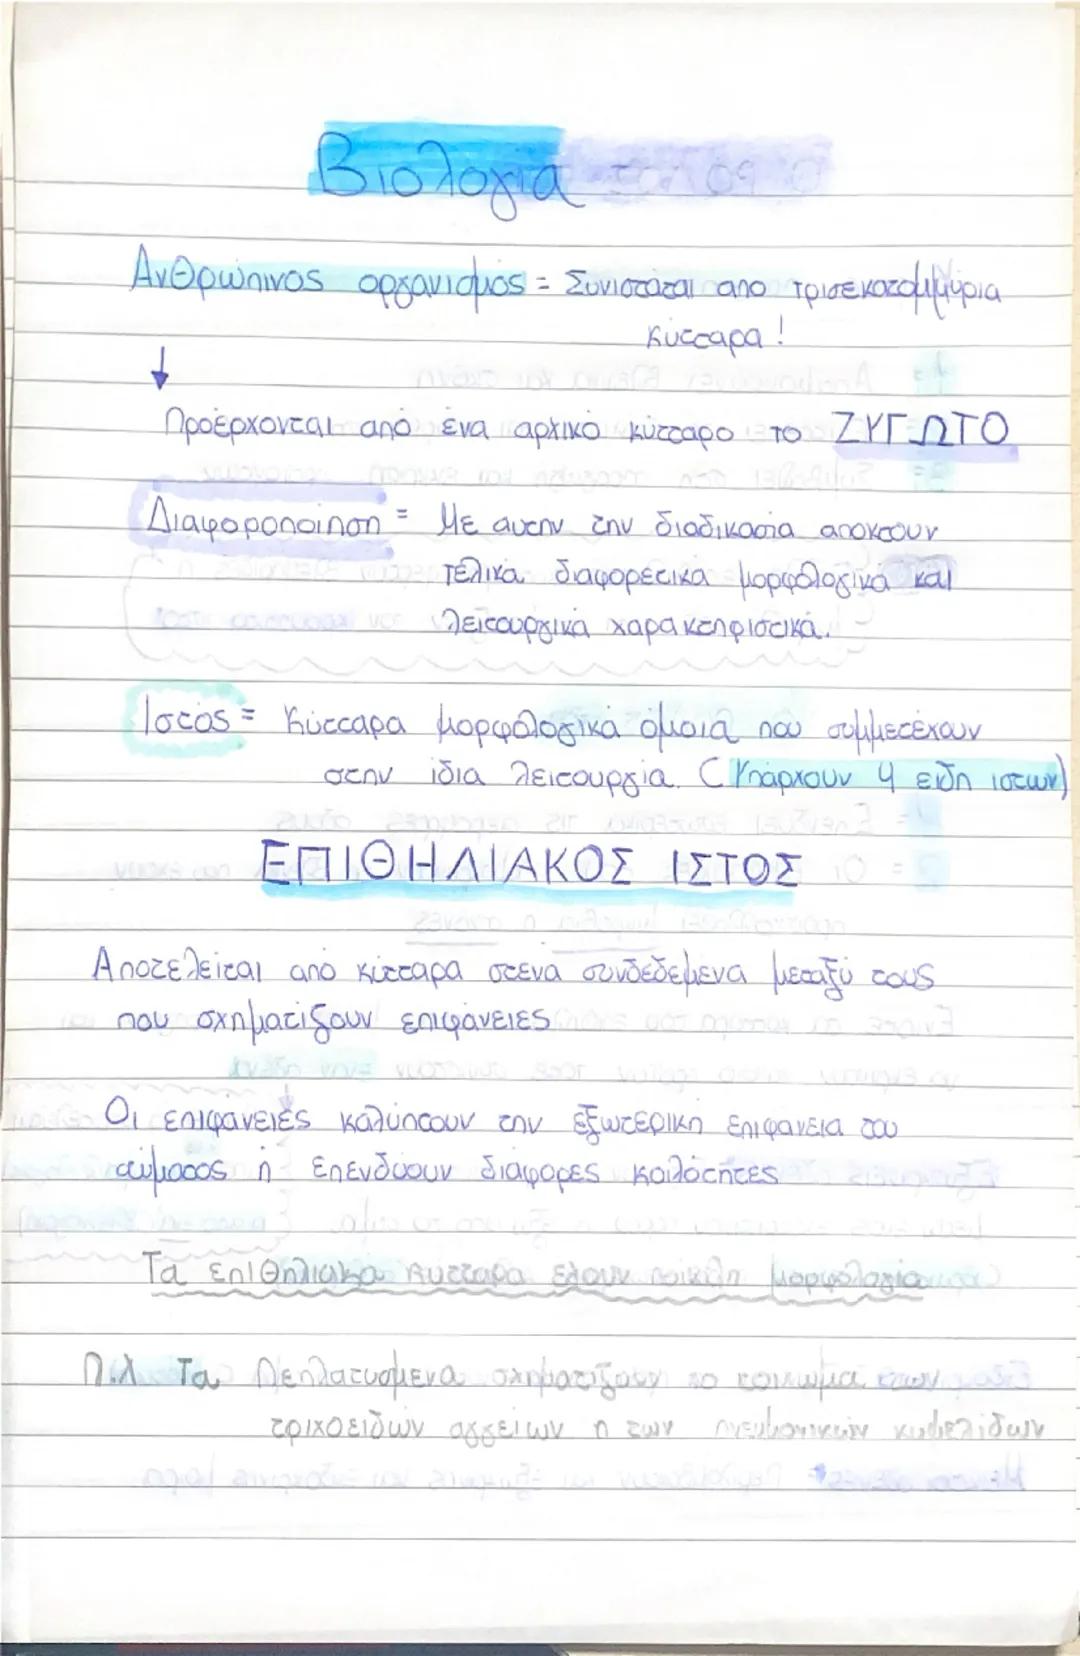 Βιολογία
Ανθρώπινος οργανισμός = Συνιστάται απο τρισεκατομμύρια
κύτταρα!
↓
Προέρχονται από ένα αρχικό κύτταρο το ΖΥΓΩΤΟ
Διαφοροποίηση = Με αυτην την διαδικασία αποκτουν
τελικά διαφορετικα μορφολογικά και
λειτουργικά χαρακτηριστικά.
Ιστός = Κύτταρα μορφολογικά όμοια που συμμετέχουν
στην ίδια λειτουργία. (Υπάρχουν 4 είδη ιστων)
ΕΠΙΘΗΛΙΑΚΟΣ ΙΣΤΟΣ
Αποτελείται από κύτταρα στενα συνδεδεμενα μεταξύ τους
που σχηματίζουν επιφάνειες
Οι επιφανειές καλύπτουν την εξωτερικη επιφανεια του
σώματος ή επενδύουν διάφορες κοιλότητες
Τα επιθηλιακα κυτταρα εχουν ποικιλη μορφολογία
Π.χ Τα Πεπλατυσμενα σχηματίζουν το τοιχωμα των
τριχοειδών αγγείων η των πνευμονικών κυψελίδων